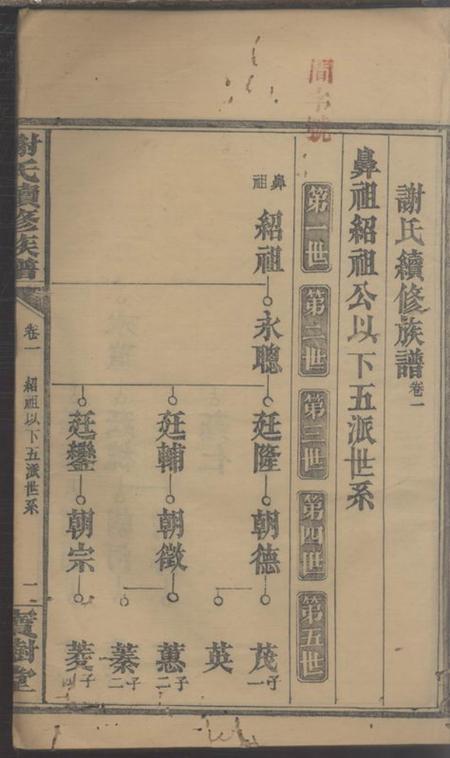 謝氏續修族譜卷一
鼻祖紹祖公以下五派世系
第一世 第二世 第三世 第四世 第五世
鼻祖
紹祖 永聰 廷隆 朝德 茂 子一
英
廷輔 朝徵 蕙 子二
蓁 子二
廷鑾 朝宗 菱 子四
謝氏續修族譜 卷一 紹祖以下五派世系 一 寶樹堂